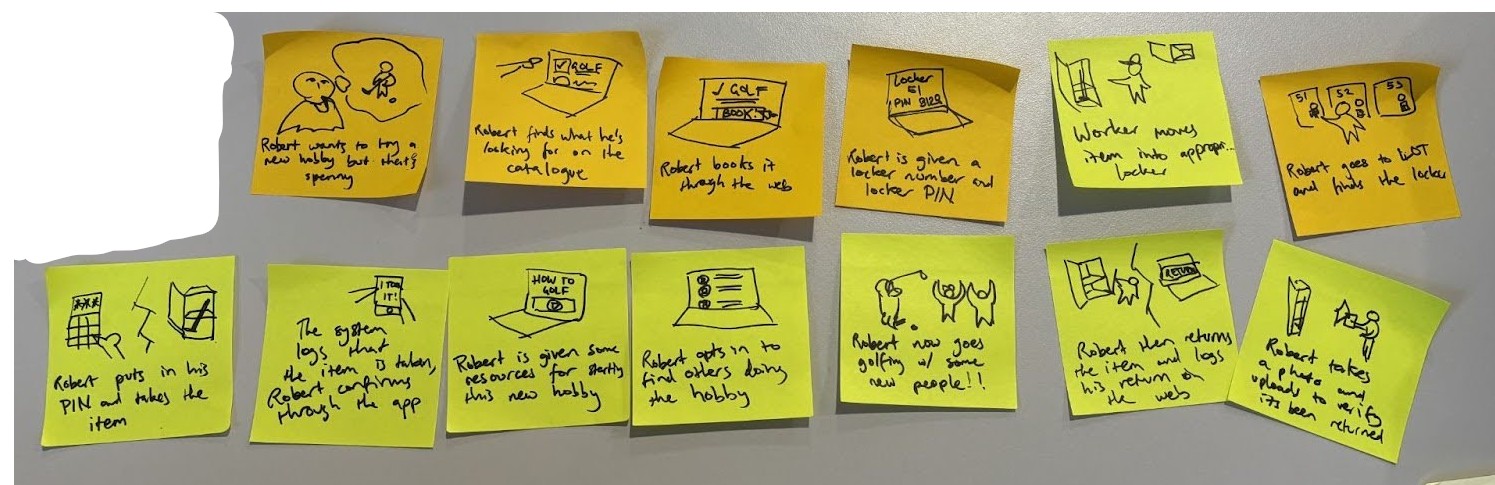 Robert wants to try a
new hobby but that's
spenny
GOLF
Robert finds what he's
looking for on the
catalogue
✓ GOLF
BOOK
Robert books it
through the web
Locker
51
PIN
Robert is given a
locker number and
locker PIN
Worker moves
item into appropri...
locker
51 52 53
Robert goes to
and finds the locker
***
Robert puts in his
PIN and takes the
item
I TOOK
IT!
The system
logs that
the item is taken,
Robert confirms
through the app
HOW TO
GOLF
Robert is given some
resources for starting
this new hobby
Robert opts in to
find others doing
the hobby
Robert now goes
golfing w/ some
new people!!
RETURN
Robert then returns
the item and logs
his return on
the web
Robert takes
a photo and
uploads to verify
its been
returned